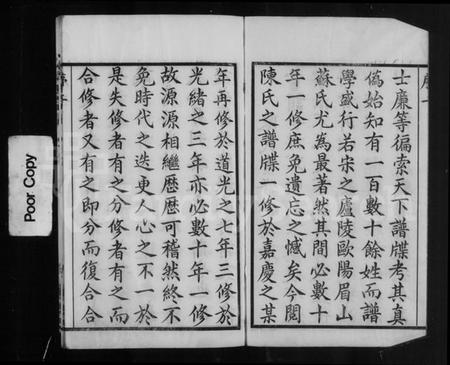 士廉等徧索天下譜牒考其真
偽始知有一百數十餘姓而譜
學盛行若宋之廬陵歐陽眉山
蘇氏尤為最著然其間必數十
年一修庶免遺忘之憾矣今閱
陳氏之譜牒一修於嘉慶之某
年再修於道光之七年三修於
光緒之三年亦必數十年一修
故源源相繼歷歷可稽然終不
免時代之迭更人心之不一於
是失修者有之分修者有之而
合修者又有之即分而復合合
Poor Copy